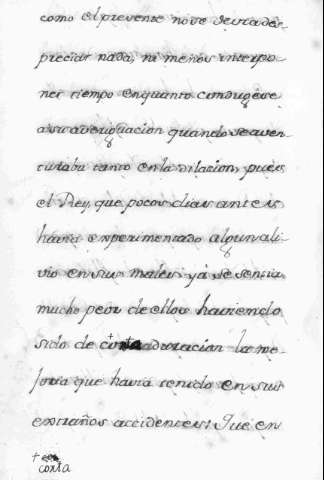 como el presente no se devia des-
preciar nada, ni menos interpo-
ner tiempo enquanto condugese
a su averiguacion quando se aven-
turaba tanto en la dilacion, pues
el Rey, que pocos dias antes
havia experimentado algun ali-
vio en sus males, yá se sentia
mucho peor de ellos haviendo
sido de + duracion la me-
joria que havia tenido en sus
extraños accidentes: Que en
+
corta